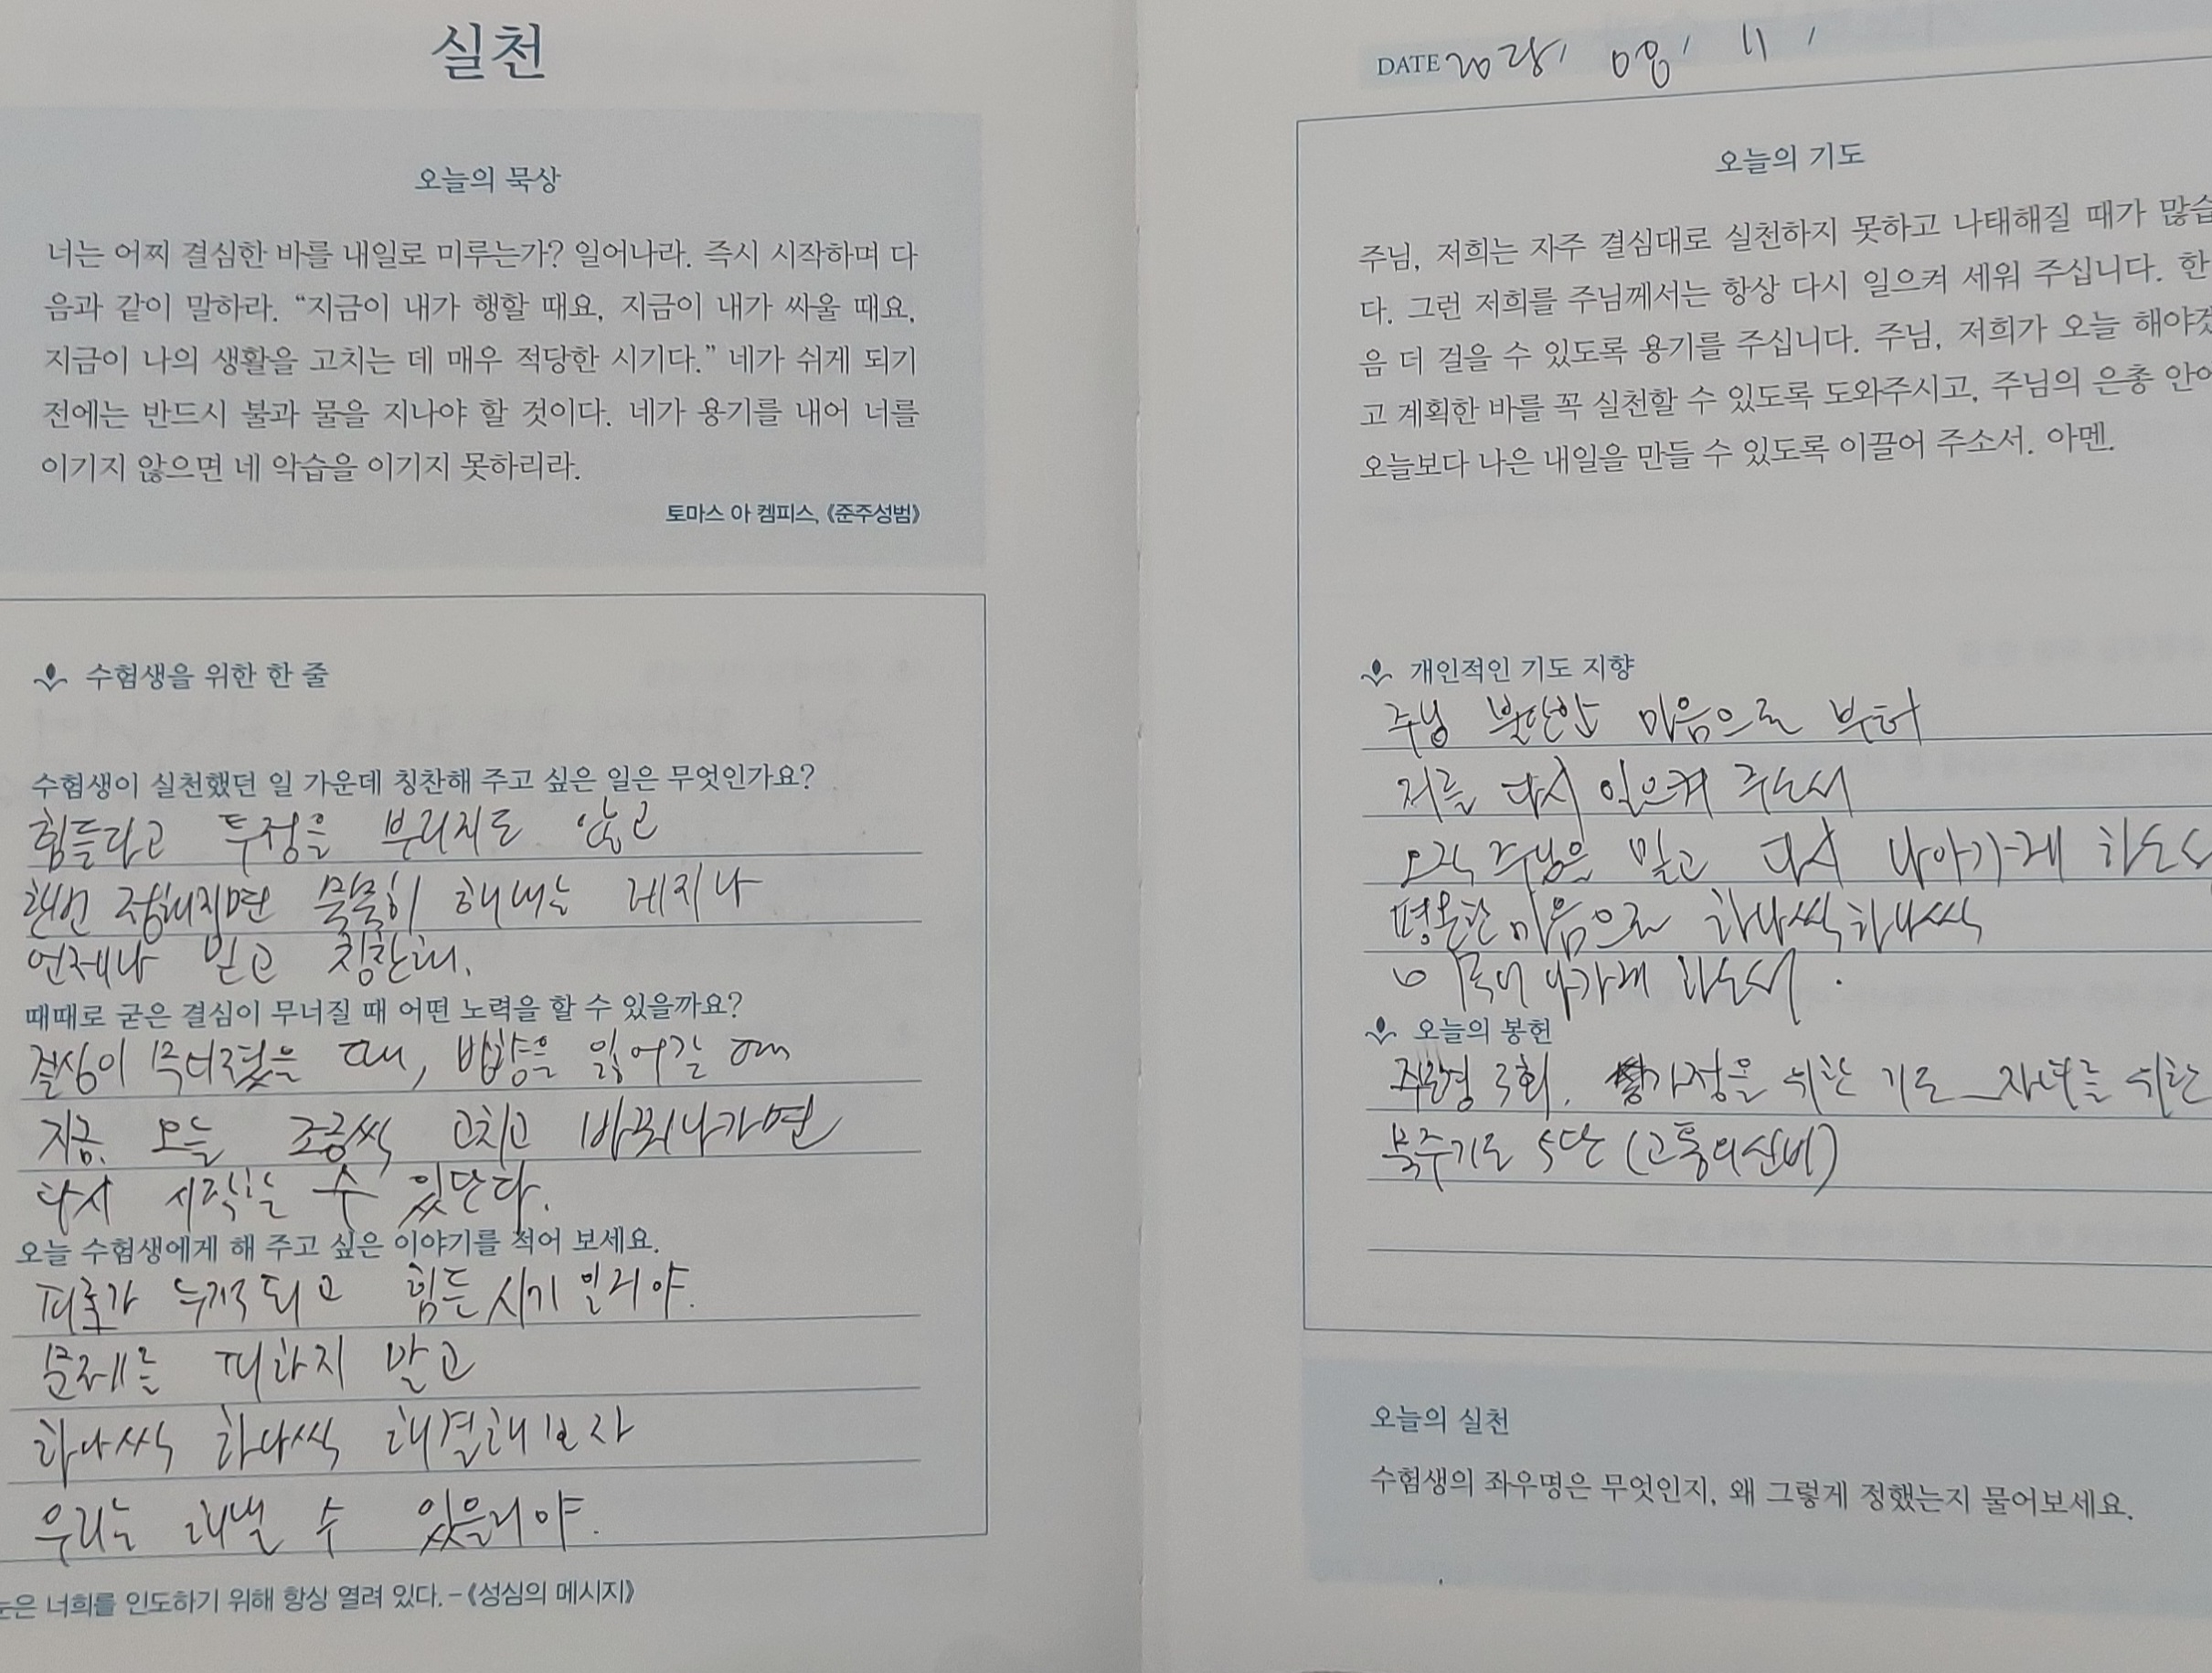 실천
오늘의 묵상
너는 어찌 결심한 바를 내일로 미루는가? 일어나라. 즉시 시작하며 다
음과 같이 말하라. “지금이 내가 행할 때요, 지금이 내가 싸울 때요,
지금이 나의 생활을 고치는 데 매우 적당한 시기다.” 네가 쉬게 되기
전에는 반드시 불과 물을 지나야 할 것이다. 네가 용기를 내어 너를
이기지 않으면 네 악습을 이기지 못하리라.
토마스 아 켐피스, 《준주성범》
수험생을 위한 한 줄
수험생이 실천했던 일 가운데 칭찬해 주고 싶은 일은 무엇인가요?
힘들다고 투정을 부리지도 않고
한번 정해지면 묵묵히 해내는 레지나
언제나 믿고 칭찬해.
때때로 굳은 결심이 무너질 때 어떤 노력을 할 수 있을까요?
결심이 무너졌을 때, 방향을 잃어갈 때
지금, 오늘 조금씩 고치고 바꿔나가면
다시 시작하는 수 있단다.
오늘 수험생에게 해 주고 싶은 이야기를 적어 보세요.
피로가 누적되고 힘든 시기일거야.
문제를 피하지 말고
하나씩 하나씩 해결해보자
우리는 해낼 수 있을거야.
은 너희를 인도하기 위해 항상 열려 있다. –《성심의 메시지》
DATE 11
오늘의 기도
주님, 저희는 자주 결심대로 실천하지 못하고 나태해질 때가 많습
다. 그런 저희를 주님께서는 항상 다시 일으켜 세워 주십니다. 한
음 더 걸을 수 있도록 용기를 주십니다. 주님, 저희가 오늘 해야겠
고 계획한 바를 꼭 실천할 수 있도록 도와주시고, 주님의 은총 안에
오늘보다 나은 내일을 만들 수 있도록 이끌어 주소서. 아멘.
개인적인 기도 지향
주님 불안한 마음으로 부터
저를 다시 일으켜 주소서
오직 주님을 믿고 다시 나아가게 하소서
평온한 마음으로 하나씩하나씩
이루어 나가게 하소서.
오늘의 봉헌
주모경 3회, 가정을 위한 기도 자녀를 위한
묵주기도 5단 (고통의신비)
오늘의 실천
수험생의 좌우명은 무엇인지, 왜 그렇게 정했는지 물어보세요.